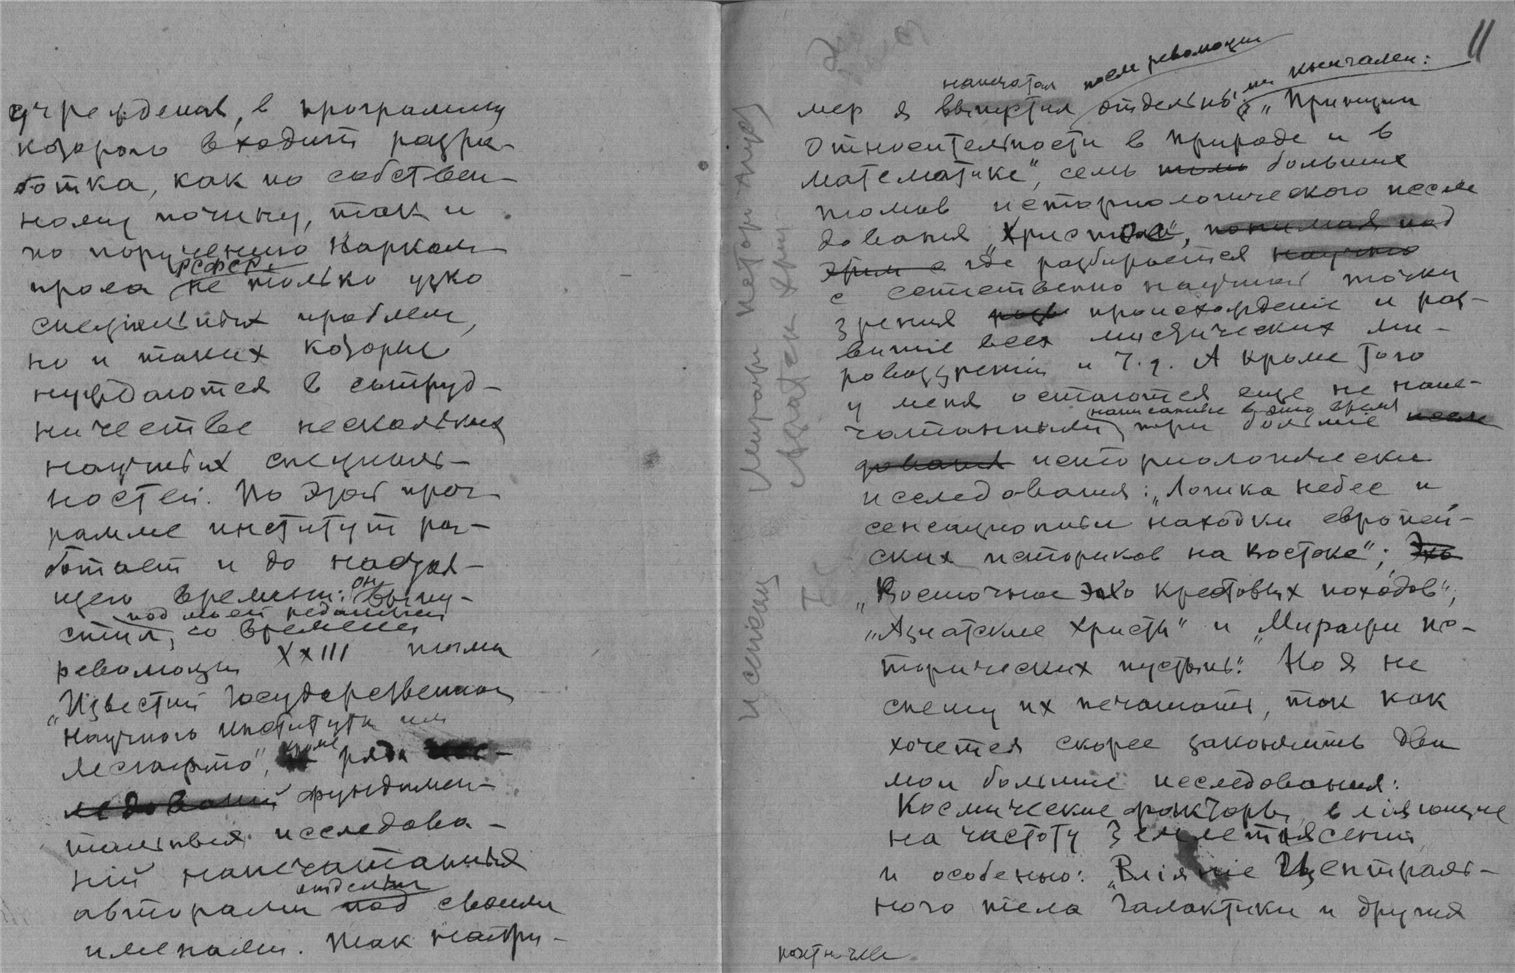 учрежденіе, в программу
которого входит разра-
ботка, как по собствен-
ному почину, так и
по поручению Нарком-
проса РСФСР, не только узко
специальных проблем,
но и таких которые
нуждаются в сотруд-
ничестве нескольких
научных специаль-
ностей. По этой прог-
рамме институт ра-
ботает и до настоя-
щего времени: он выпу-
стил, под моей редакцией
со времени
революции XXIII тома
"Известий Государственного
Научного института им
Лесгафта", кроме ряда исс-
ледований фундамен-
тальных исследова-
ний напечатанных
авторами отдельно под своими
именами. Так напри-
11
напечатал после революции ми книгами:
мер я выпустил отдельны "Принцип
относительности в природе и в
математике", семь больших
томов историологического иссле
дования "Христос", понимая под
этим с где разбирается научно
с естественно научной точки
зрения происхождение и раз-
витие всех мистических ми-
ровоззрений и т.д. А кроме того
у меня остаются еще не напе-
чатанными написанные в это время три большие иссле
дования историологически
исследования: "Логика небес и
сенсационные находки европей-
ских историков на востоке"; Эхо
"Восточное эхо крестовых походов",
"Азиатские Христы" и "Миражи ис-
торических пустынь". Но я не
спешу их печатать, так как
хочется скорее закончить два
мои большие исследования:
Космические факторы, вліяющие
на частоту землетрясений
и особенно: "Вліяніе Централь-
ного тела Галактики и других
Миражи историч
Азиатск Хри